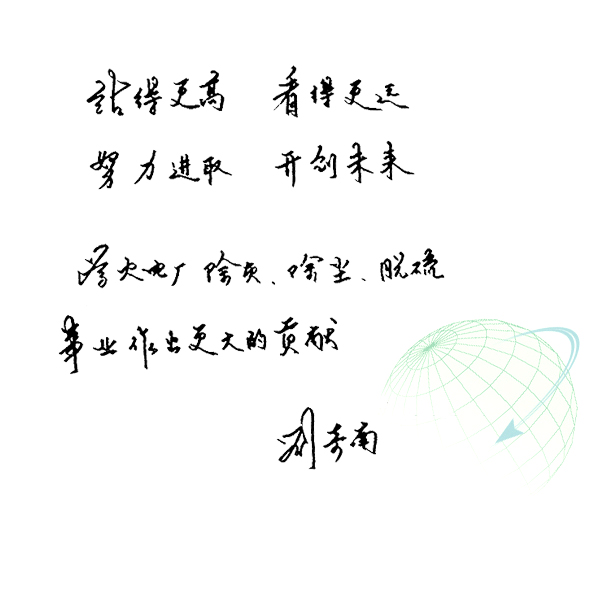 站得更高 看得更远
努力进取 开创未来
为火电厂除灰、除尘、脱硫
事业作出更大的贡献
刘李南